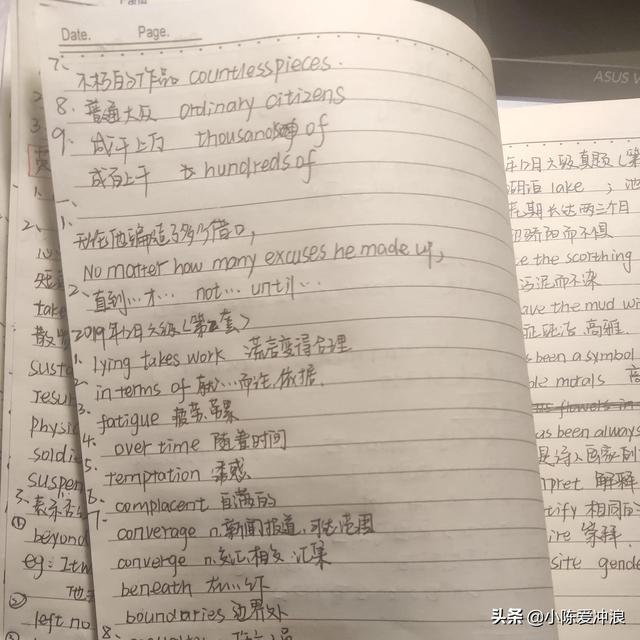 Date. Page.
7、
不朽的作品 countless pieces.
8. 普通大众 ordinary citizens
9. 成千上万 thousands of
成百上千 hundreds of
1、
无论他编造了多少借口,
No matter how many excuses he made up,
2、直到…才… not… until…
2019年12月六级(第2套)
1. lying takes work 谎言变得合理
2. in terms of 就…而论, 依据.
3. fatigue 疲劳、劳累
4. over time 随着时间
5. temptation 诱惑
6. complacent 自满的
7. converage n.新闻报道,可包范围
converge n.交汇相交、汇集
beneath 在…下
boundaries 边界外
8、
ASUS V
年12月六级真题(第
湖泊 lake ; 池
花期长达两三个月
the scorthing
污泥而不染
ave the mud wi
高雅
s been a symbol
ble morals 高
as been always
pret 解释
tify 相同的
ire 崇拜
site gende
take
散步
susta
resur
physic
soldie
suspen
①
beyond
eg: It w
②
left no
头条 @小陈爱冲浪